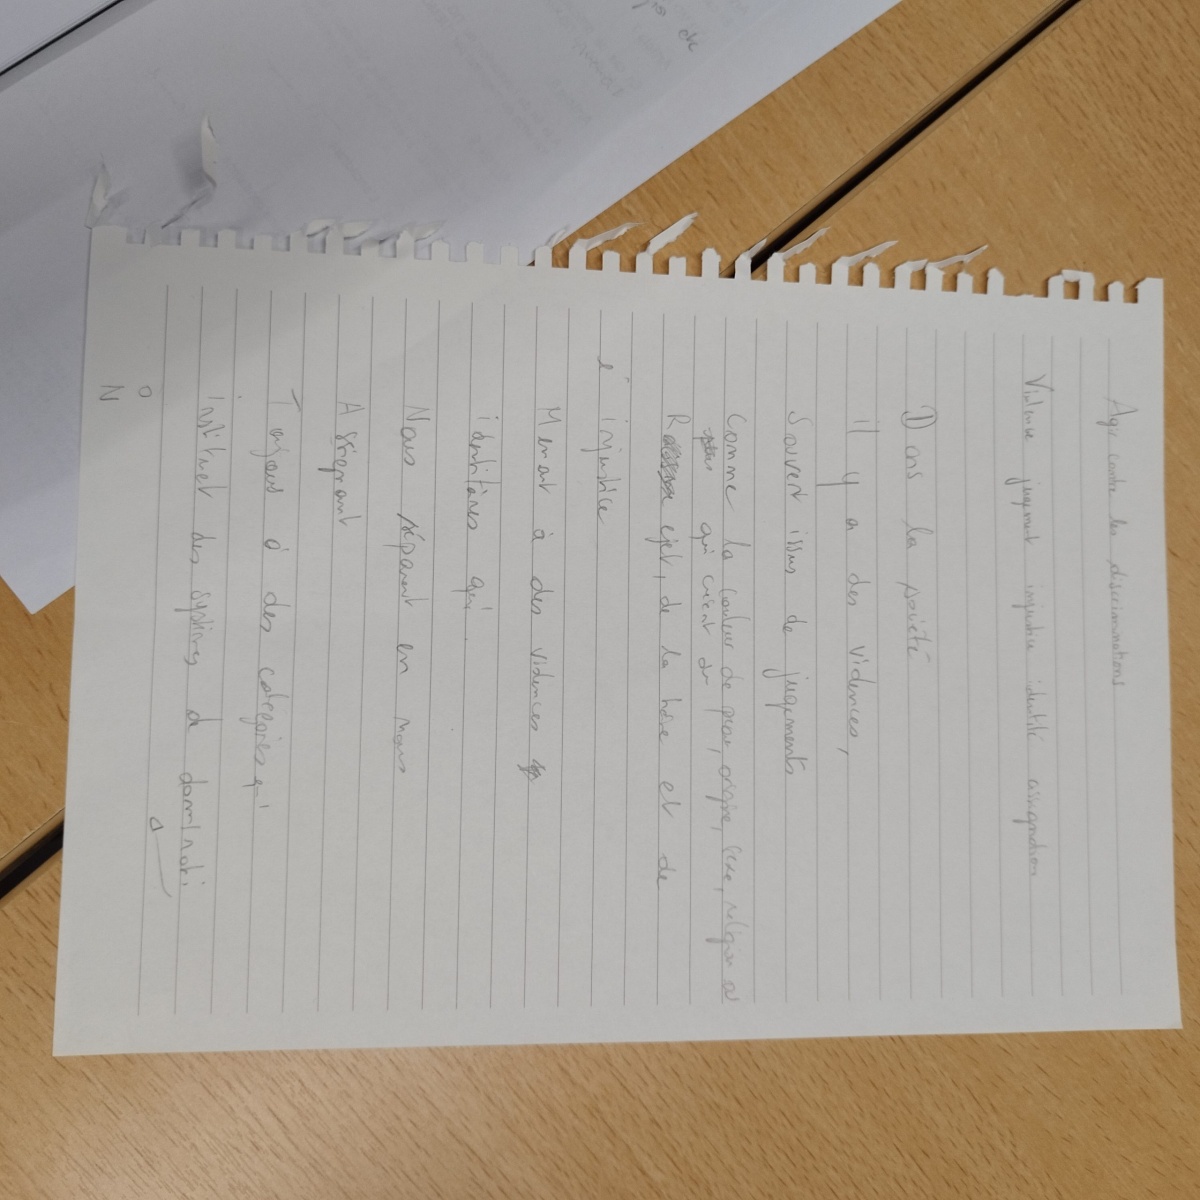 Agir contre les discriminations
Violence jugement injustice identité assignation
Dans la société
il y a des violences,
Souvent issus de jugements
Comme la couleur de peau, origine, sexe, religion
qui crient du
Rejet, de la haine et de
l'injustice
Menant à des violences
identitaires qui
Nous séparent en nous
Assignant
Toujours à des catégories qui
instituent des systèmes de dominati
O
N